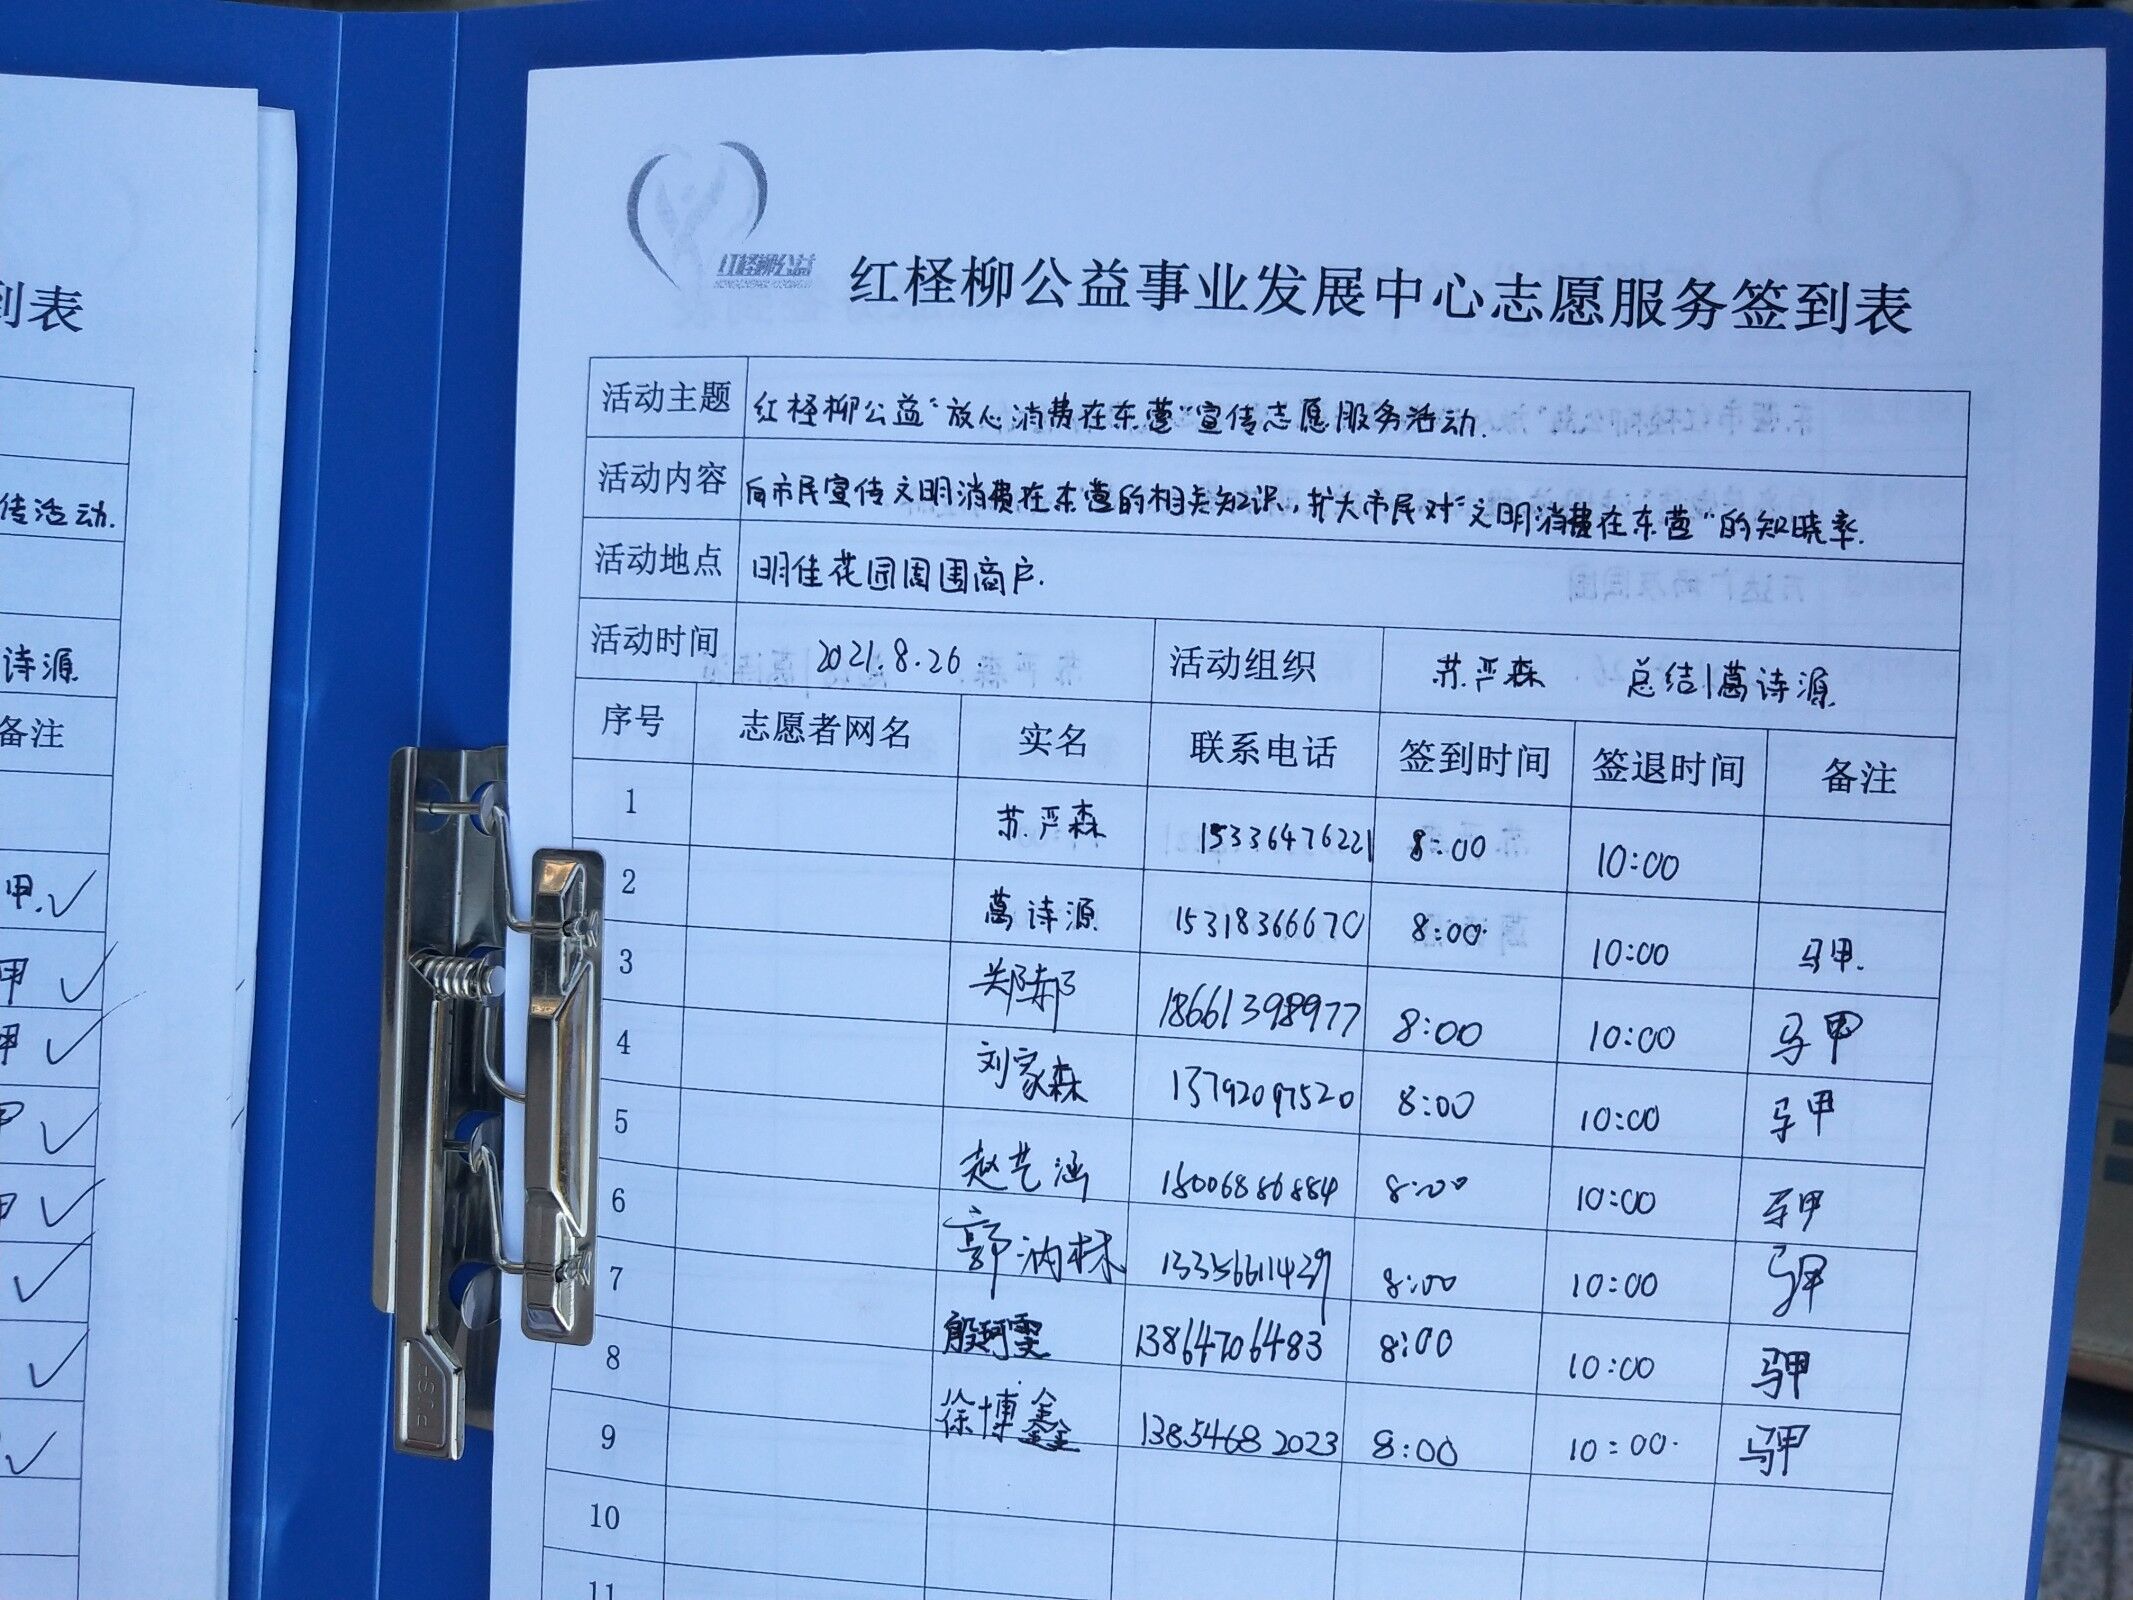 到表
传活动.
诗源
备注
甲.✓
甲 ✓
甲 ✓
甲 ✓
甲 ✓
✓
✓
✓
红柽柳公益
红柽柳公益事业发展中心志愿服务签到表
活动主题 红柽柳公益“放心消费在东营”宣传志愿服务活动.
活动内容 向市民宣传文明消费在东营的相关知识,扩大市民对“文明消费在东营”的知晓率.
活动地点 明佳花园周围商户.
活动时间 2021.8.26. 活动组织 苏严森 总结|葛诗源
序号 志愿者网名 实名 联系电话 签到时间 签退时间 备注
1 苏严森 15336476221 8:00 10:00
2 葛诗源 15318366670 8:00 10:00 马甲.
3 郑郝 18661398977 8:00 10:00 马甲
4 刘家森 13792097520 8:00 10:00 马甲
5 赵艺涵 15006886884 8:00 10:00 马甲
6 郭汭林 13356611429 8:00 10:00 马甲
7 殷珂雯 13864706483 8:00 10:00 马甲
8 徐博鑫 13854682023 8:00 10:00. 马甲
9
10
11
PUSH